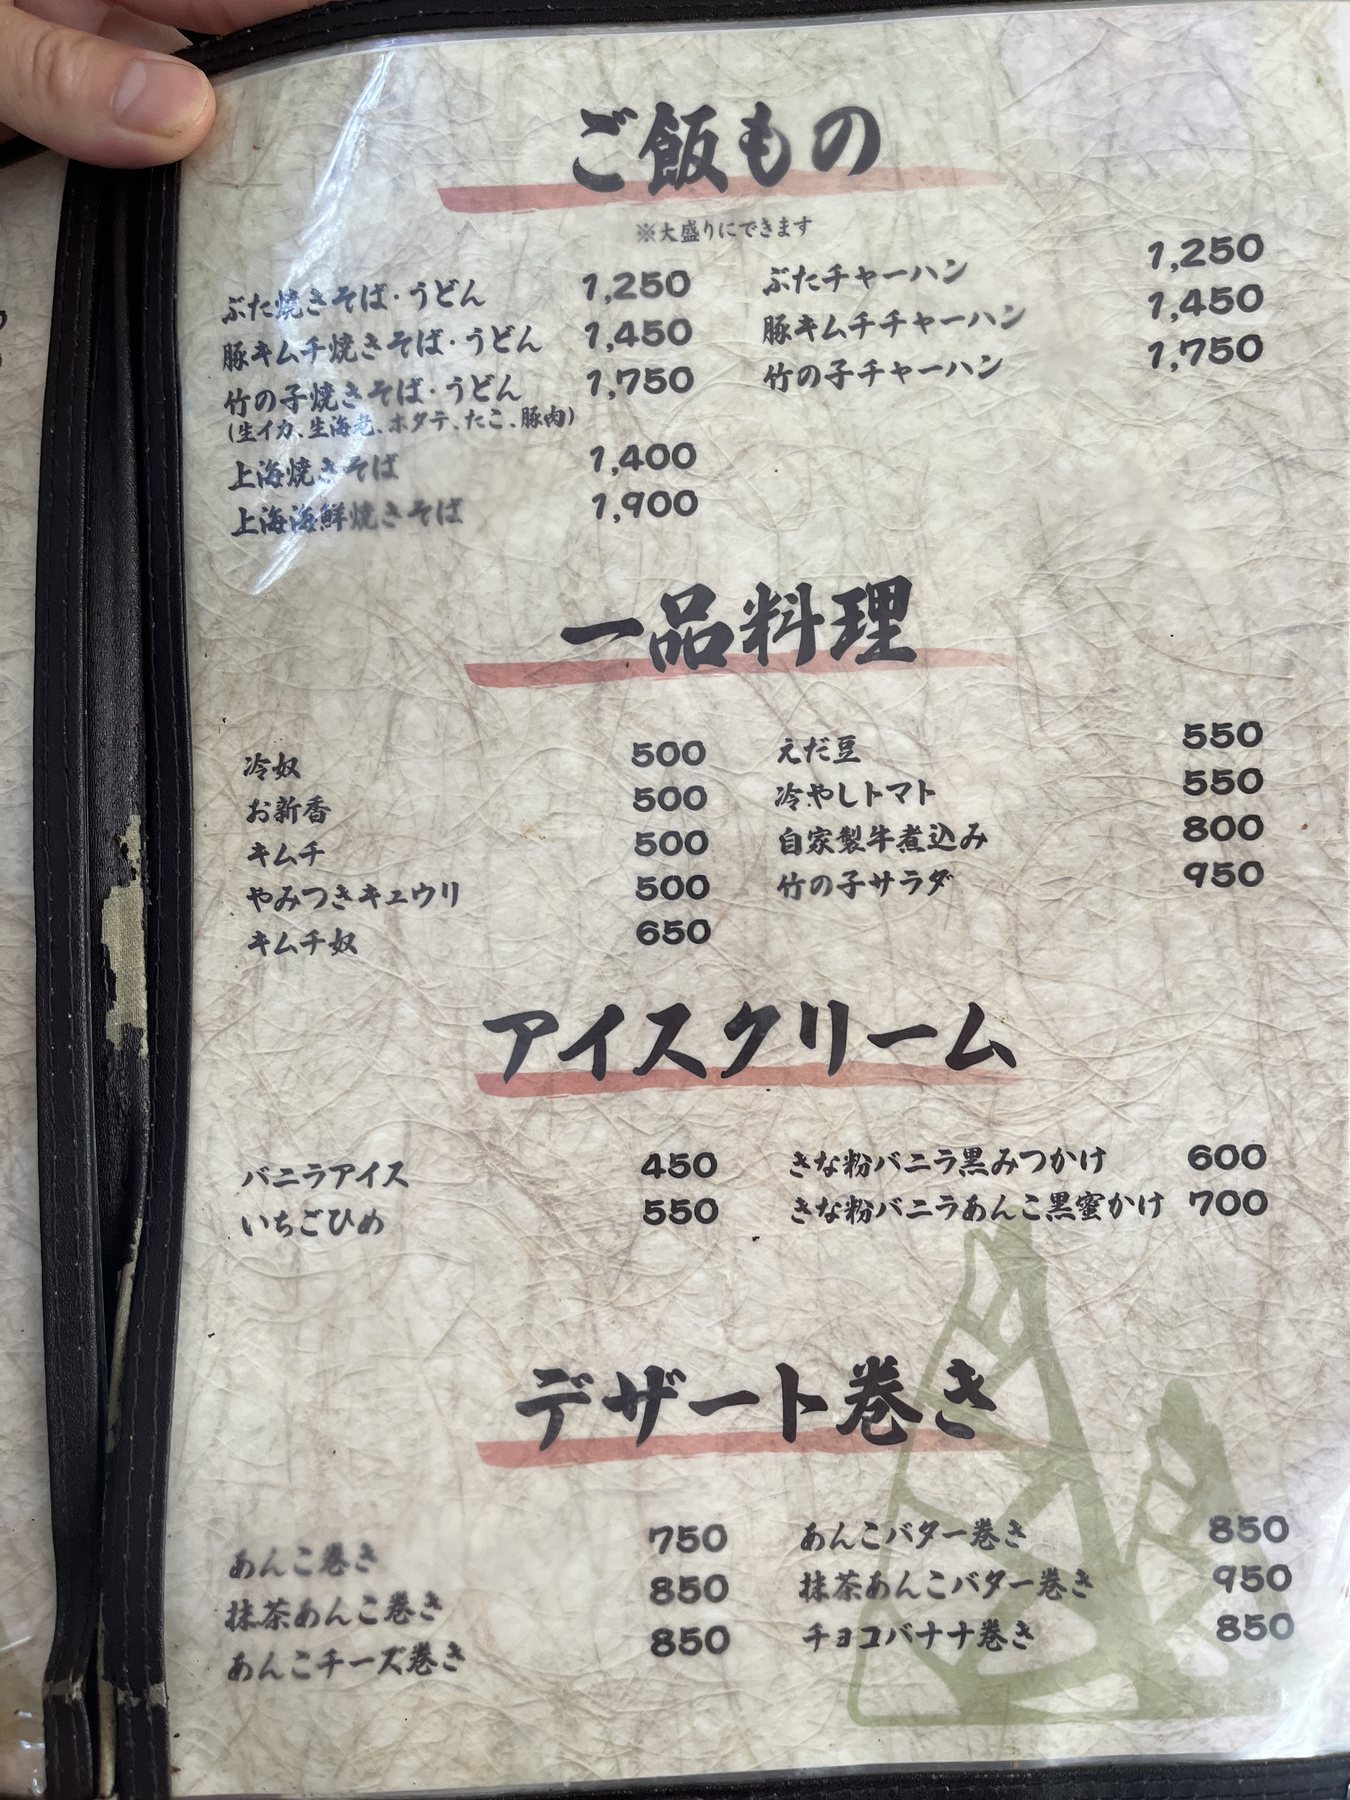 ご飯もの
※大盛りにできます
ぶた焼きそば・うどん 1,250
豚キムチ焼きそば・うどん 1,450
竹の子焼きそば・うどん 1,750
(生イカ、生海老、ホタテ、たこ、豚肉)
上海焼きそば 1,400
上海海鮮焼きそば 1,900
ぶたチャーハン 1,250
豚キムチチャーハン 1,450
竹の子チャーハン 1,750
一品料理
冷奴 500
お新香 500
キムチ 500
やみつきキュウリ 500
キムチ奴 650
えだ豆 550
冷やしトマト 550
自家製牛煮込み 800
竹の子サラダ 950
アイスクリーム
バニラアイス 450
いちごひめ 550
きな粉バニラ黒みつかけ 600
きな粉バニラあんこ黒蜜かけ 700
デザート巻き
あんこ巻き 750
抹茶あんこ巻き 850
あんこチーズ巻き 850
あんこバター巻き 850
抹茶あんこバター巻き 950
チョコバナナ巻き 850